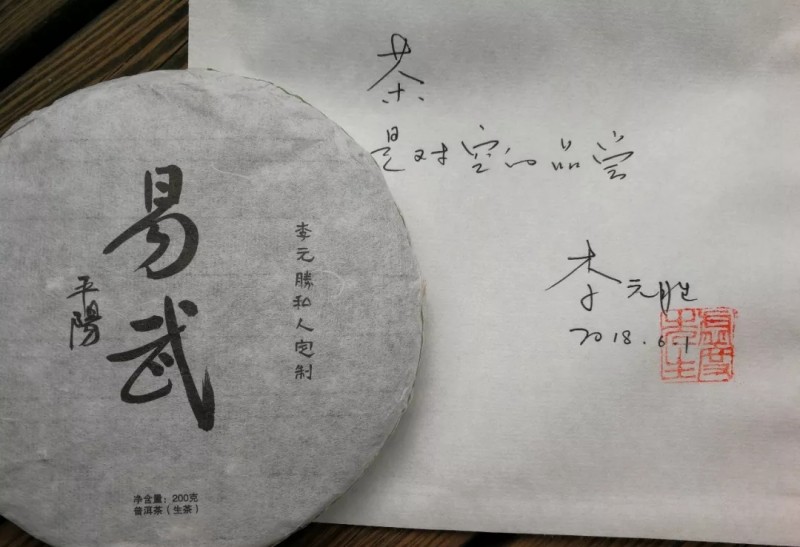 易武
平陽
李元勝私人定制
净含量：200克
普洱茶（生茶）
茶
是对空的品尝
李元胜
2018.6.1